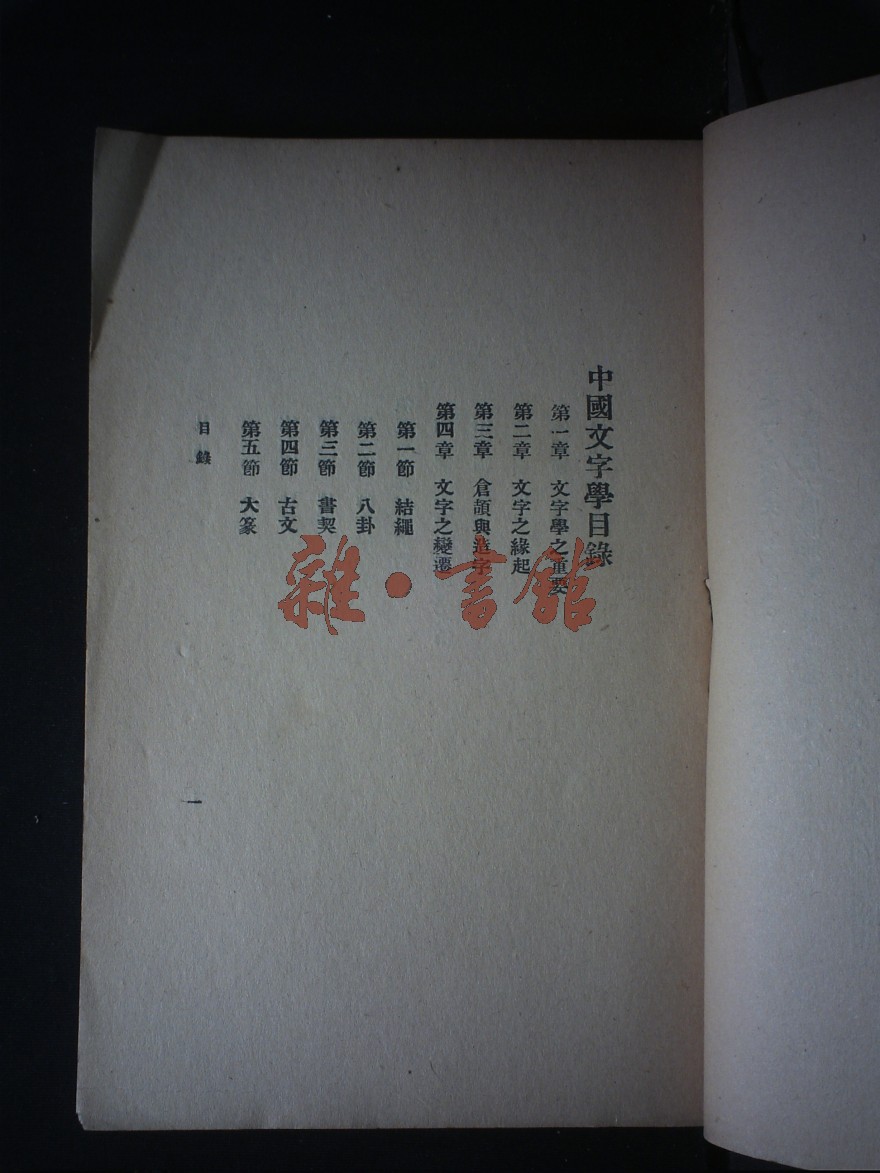 中國文字學目錄
第一章 文字學之重要
第二章 文字之緣起
第三章 倉頡與造字
第四章 文字之變遷
第一節 結繩
第二節 八卦
第三節 書契
第四節 古文
第五節 大篆
目錄
一
雜·書館